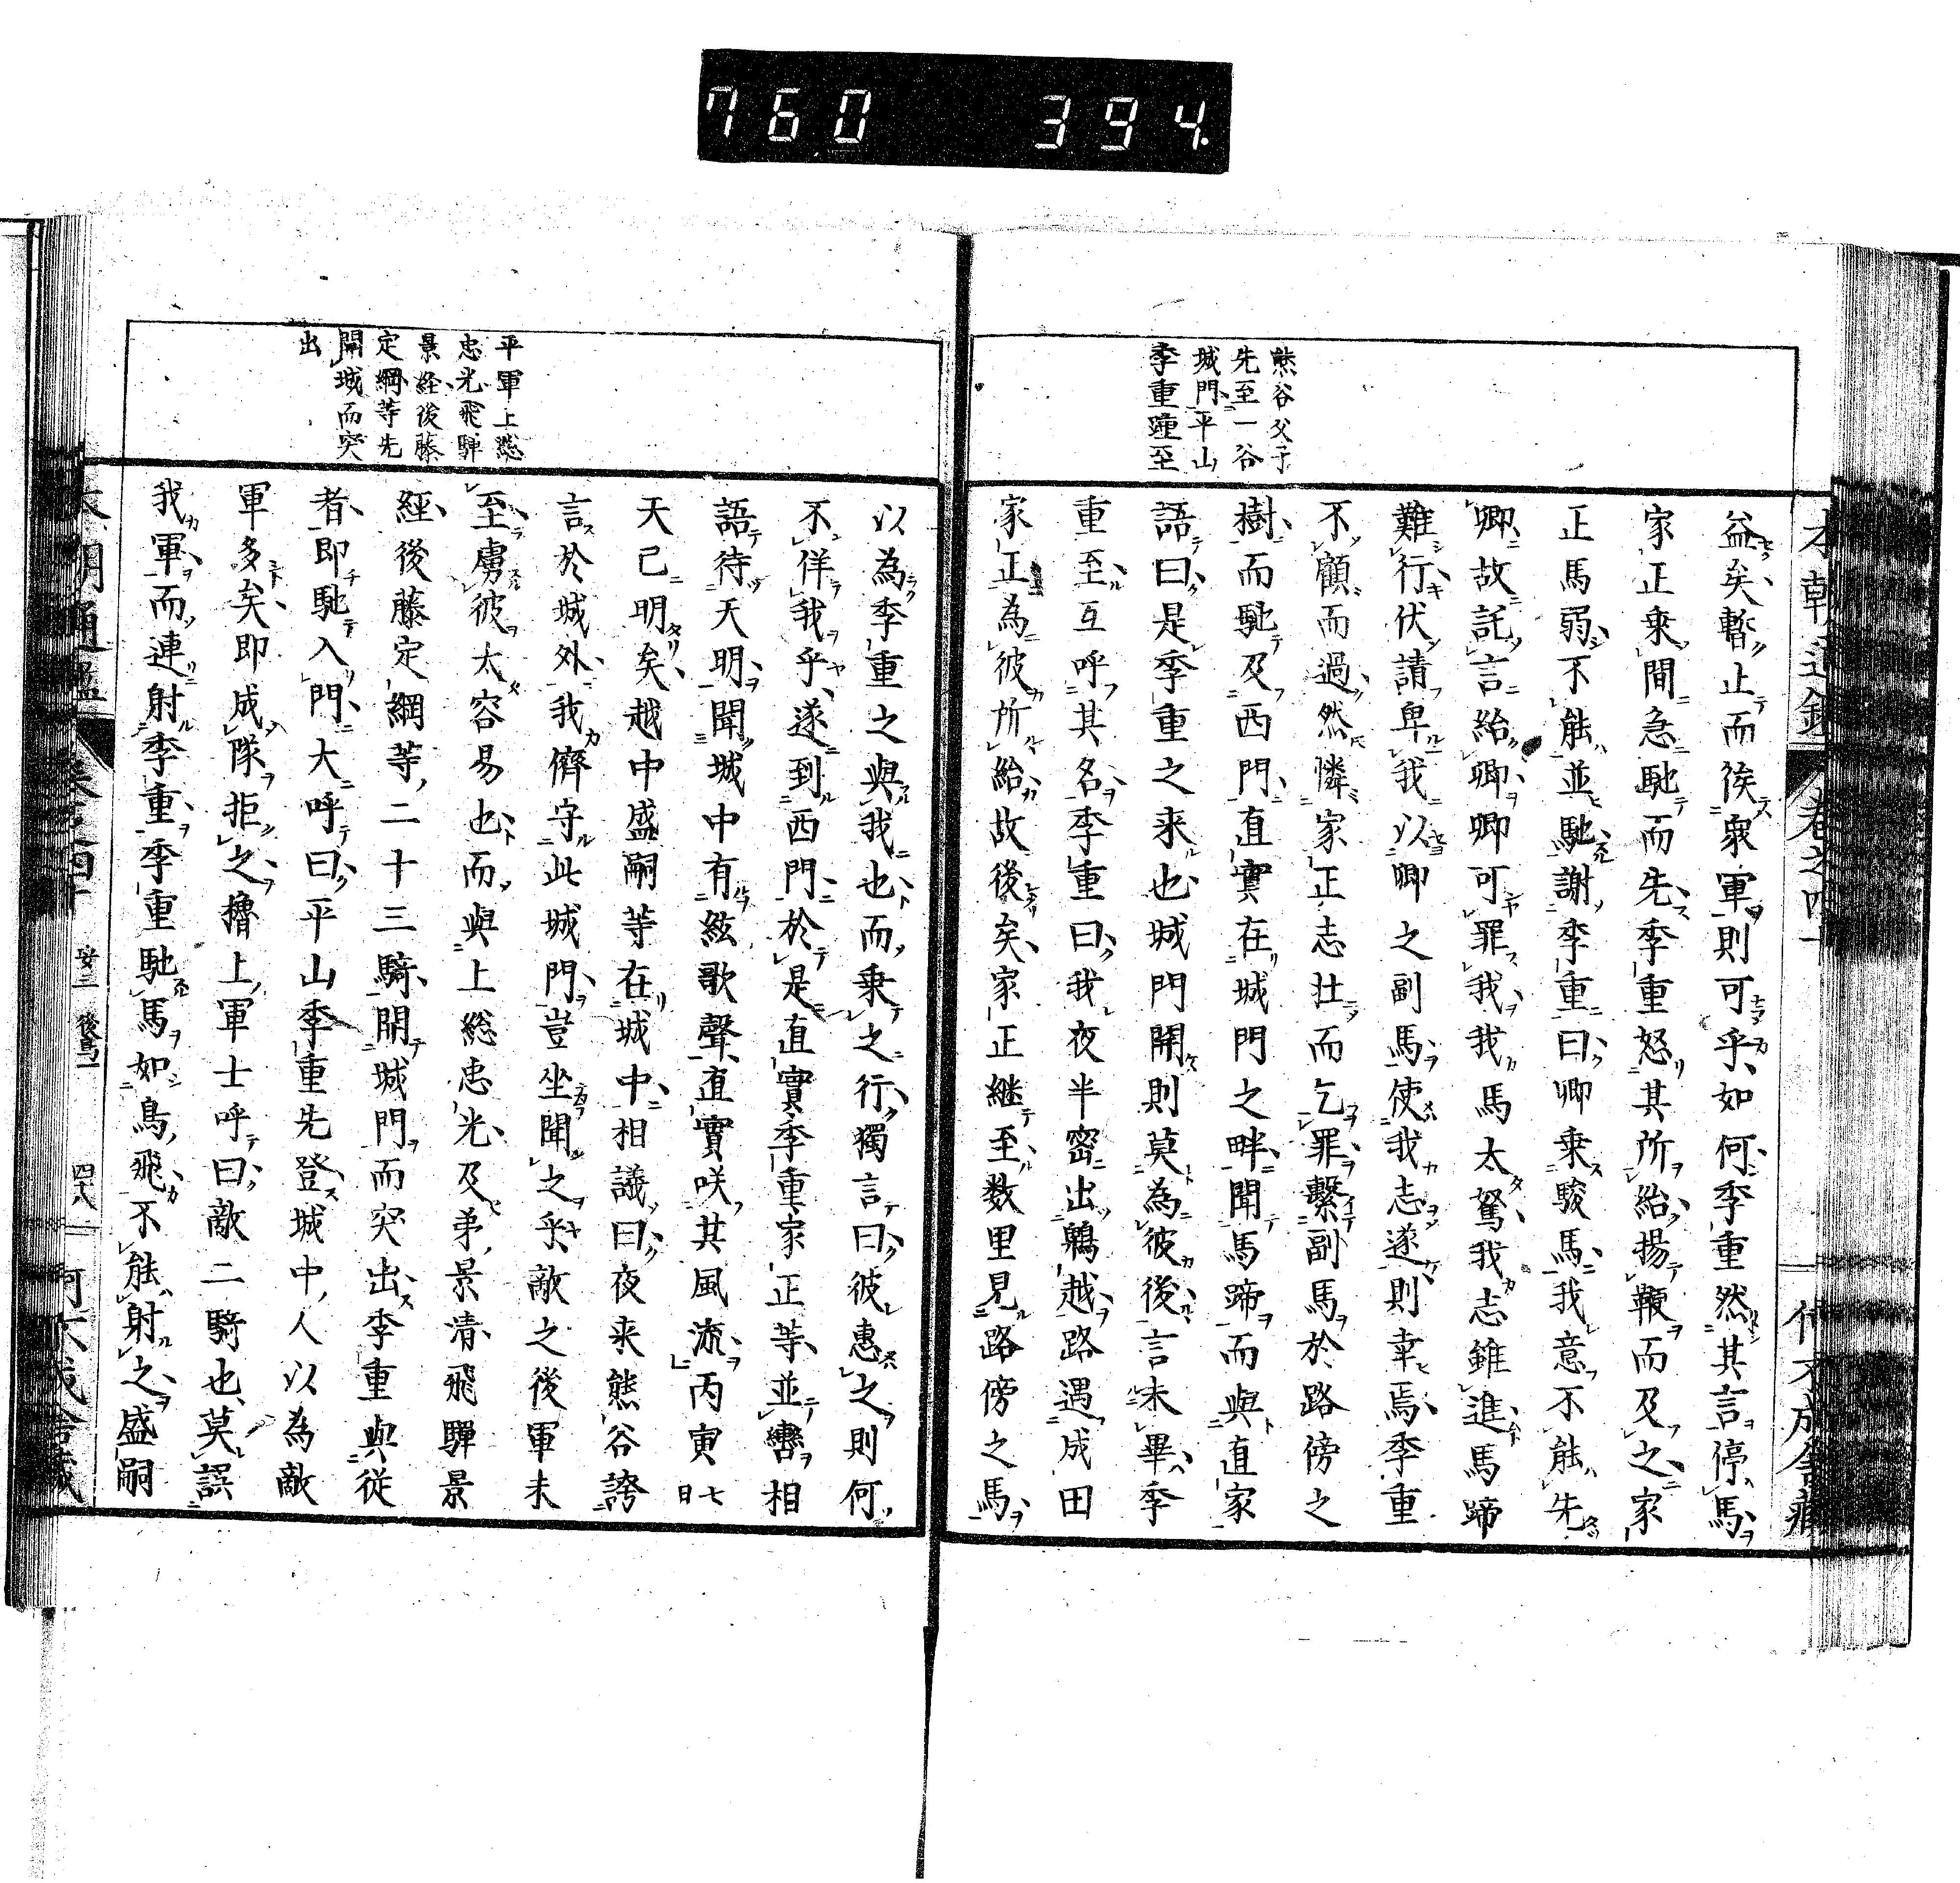 760 394
熊谷父子
先至一谷
城門平山
季重踵至
益矣暫止而俟衆軍則可乎如何季重然其言停馬
家正乗間急馳而先季重怒其所紿揚鞭而及之家
正馬弱不能並馳謝季重曰卿乗駿馬我意不能先
卿故託言紿卿卿可罪我我馬太駑我志雖進馬蹄
難行伏請卑我以卿之副馬使我志遂則幸焉季重
不顧而過然憐家正志壮而乞罪繫副馬於路傍之
樹而馳及西門直實在城門之畔聞馬蹄而與直家
語曰是季重之来也城門開則莫為彼後言未畢季
重至互呼其名季重曰我夜半密出鵯越路遇成田
家正為彼所紿故後矣家正継至数里見路傍之馬
平軍上総
忠光飛騨
景経後藤
定綱等先
開城而突
出
以為季重之與我也而乗之行獨言曰彼惠之則何
不佯我乎遂到西門於是直實季重家正等並轡相
語待天明聞城中有絃歌聲直實咲其風流丙寅七日
天已明矣越中盛嗣等在城中相議曰夜来熊谷誇
言於城外我儕守此城門豈坐聞之乎敵之後軍未
至虜彼太容易也而與上総忠光及弟景清飛騨景
經後藤定綱等二十三騎開城門而突出季重與従
者即馳入門大呼曰平山季重先登城中人以為敵
軍多矣即成隊拒之櫓上軍士呼曰敵二騎也莫誤
我軍而連射季重季重馳馬如鳥飛不能射之盛嗣